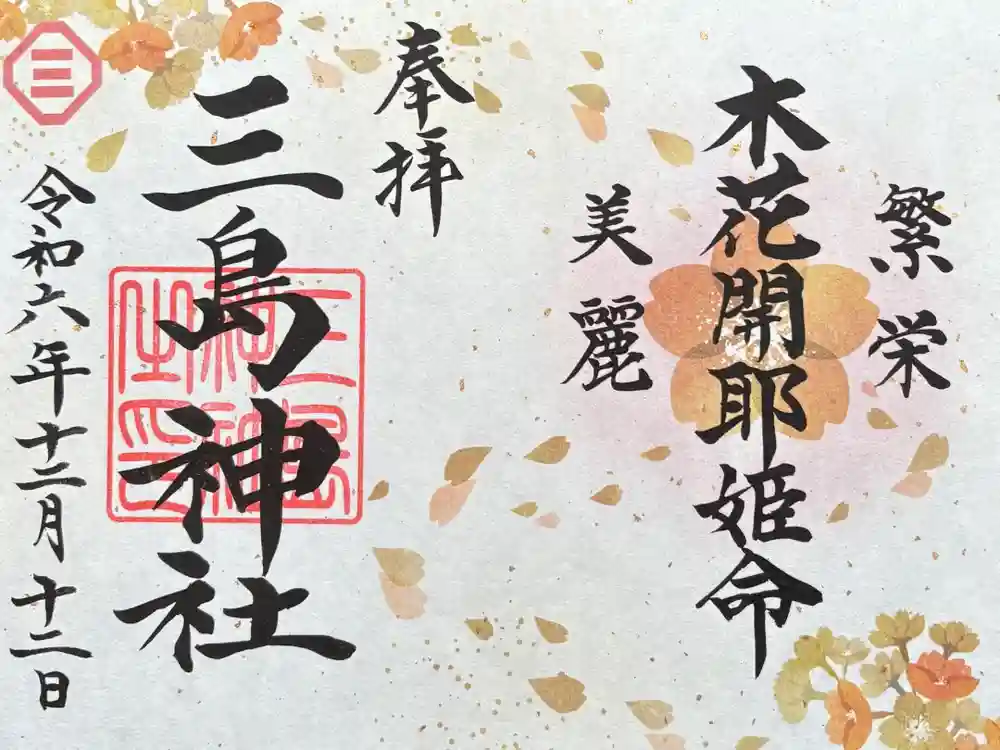 繁栄
木花開耶姫命
美麗
奉拝
三島神社
三島神社之印
令和六年十二月十二日